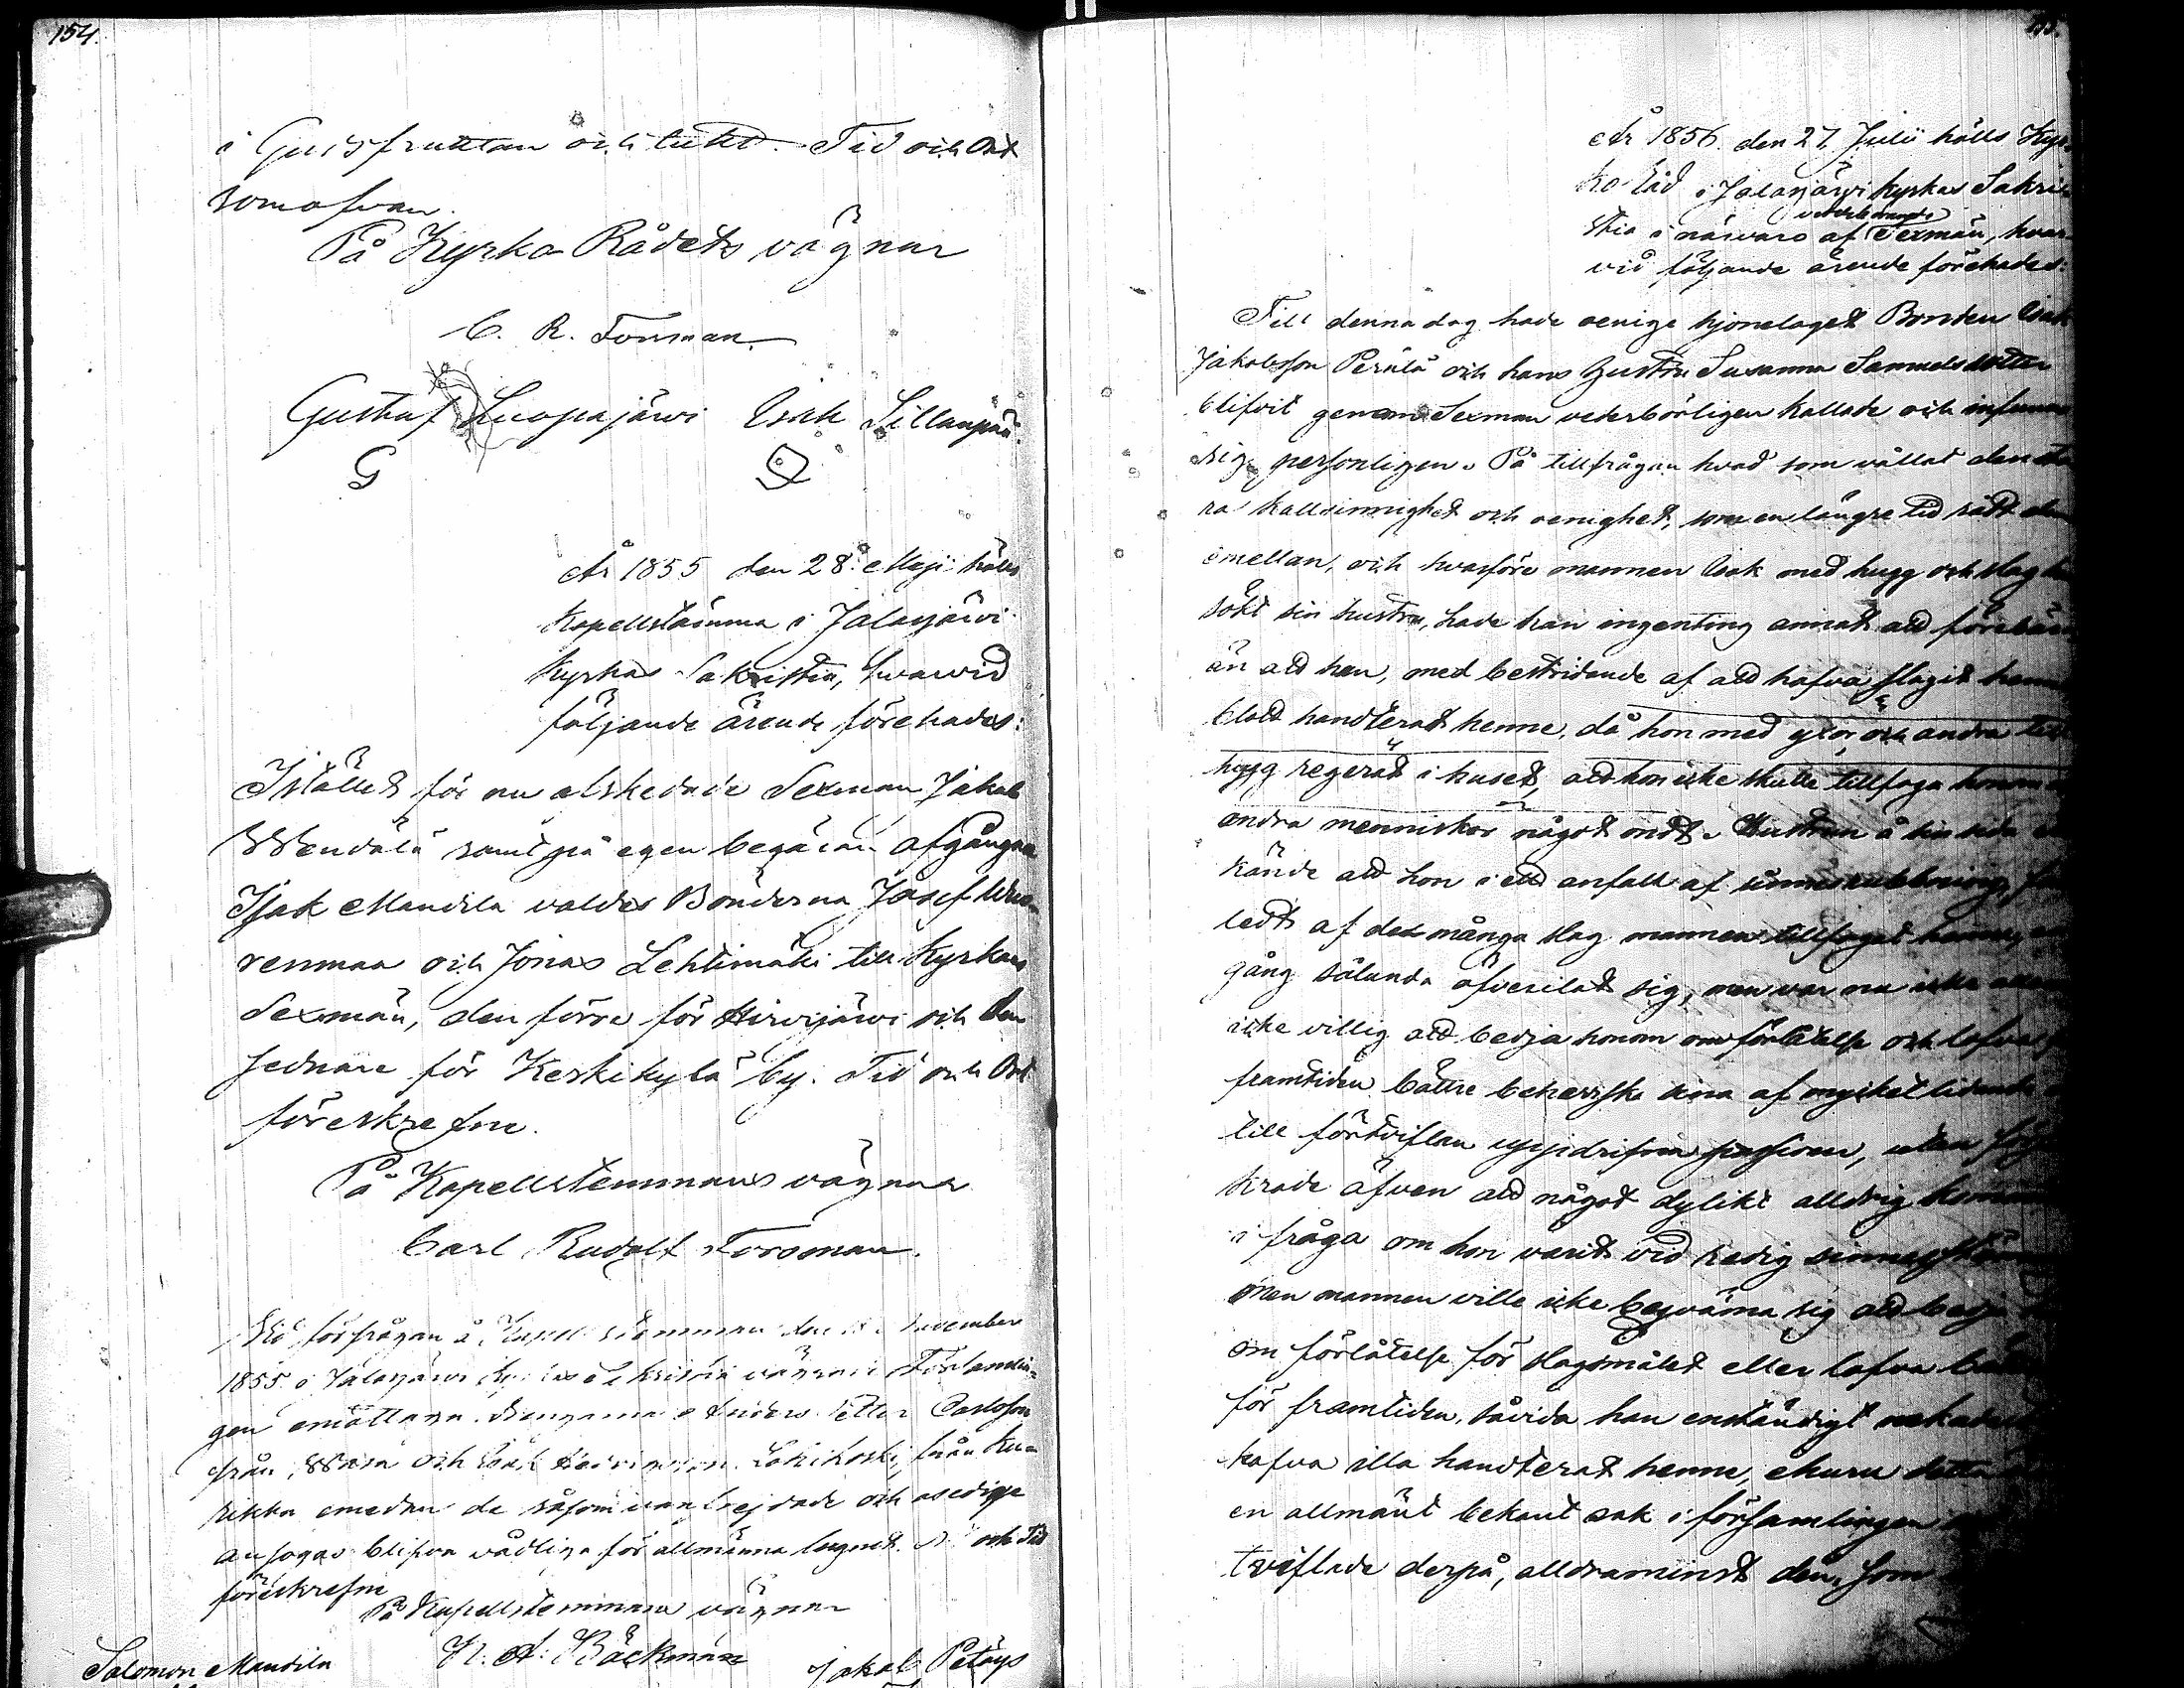 154.
i Gudsfruktan och tukt. Tid och Ort
som ofvan.
På Kyrko Rådets vägnar
C. R. Forsman.
Gustaf Luopajärvi Isak Sillanpää.
G
År 1855 den 28 Maji hölls
Kapellstämma i Jalasjärvi
kyrkas Sakristia, hvarvid
följande ärende förehades:
Istället för nu afskedade Sexman Jakob
samt på egen begäran afgångne
Isak Mandila valdes Bönderna Josef Wuo-
renmaa och Jonas Lehtimäki till Kyrkans
Sexmän, den förre för Hirvijärvi och den
sednare för Keskikylä by. Tid och Ort
föreskrefne.
På Kapellstemmans vägnar
Carl Rudolf Forsman.
På förfrågan å Kapell Stemman den November
1855 i Jalasjärvi Sakristia vägrade Församlin-
gen emottaga Anders Carlsson
från Wasa och Isak Lakikoski från Ku-
rikka emedan de såsom vanfrejdade och osedige
ansågos blifva vådliga för allmänna lugnet. Ort och Tid
föreskrefne
På Kapellstemmans vägnar
K. A. Bäckman
Salomon Mandila Jakob Petäys
År 1856 den 27 Julii hölls Kyr-
ko Råd i Jalasjärvi kyrkas Sakri-
vederbörande
stia i närvaro af Sexmän, hvar-
vid följande ärende förehades:
Till denna dag hade oenige hjonelaget Bonden Isak
Jakobsson Perälä och hans hustru Susanna Samuelsdotter
blifvit genom Sexman vederbörligen kallade och infunno
sig personligen. På tillfrågan hvad som vållat den sto
ra kallsinnighet och oenighet, som en längre tid rådt dem
emellan, och hvarföre mannen Isak med hugg och slag
sökt sin hustru, hade han ingenting annat att förebära
än att han, med bestridande af att hafva slagit henne
blott handterat henne, då hon med yxor och andra till
hygg regerat i huset, att hon icke skulle tillfoga honom
andra menniskor något ondt. Hustrun å sin sida
kände att hon i ett anfall af sinnesrubbning,
ledt af de många slag mannen tillfogat henne,
gång sålunda öfverilat sig, men var nu icke
icke villig att bedja honom om förlåtelse och lofva
framtiden bättre beherrska sina af mycket lidande
till förtviflan uppdrifna passioner, utan
krade äfven att något dylikt alldrig komme
i fråga om hon varit vid redig sinnesför
men mannen ville icke beqväma sig att bedja
om förlåtelse för slagsmålet eller lofva bättre
för framtiden, såvida han enständigt nekade
hafva illa handterat henne, ehuru detta
en allmänt bekant sak i församlingen
tviflade derpå, alldraminst den, som